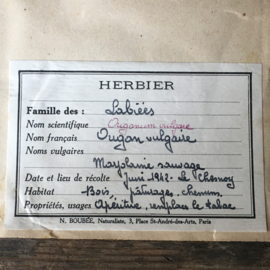 HERBIER
Famille des : Labiées
Nom scientifique Origanum vulgare
Nom français Origan vulgaire
Noms vulgaires
Marjolaine sauvage
Date et lieu de récolte Juin 1942 - Le Chesnoy
Habitat Bois, pâturages, chemins
Propriétés, usages Apéritive, remplace le tabac
N. BOUBÉE, Naturaliste, 3, Place St-André-des-Arts, Paris